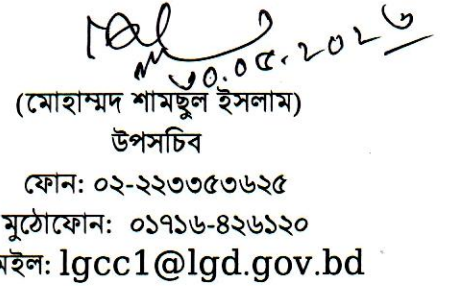 (মোহাম্মদ শামছুল ইসলাম)
উপসচিব
ফোন: ০২-২২৩৩৫৩৬২৫
মুঠোফোন: ০১৭১৬-৪২৬১২০
মইল: lgcc1@lgd.gov.bd